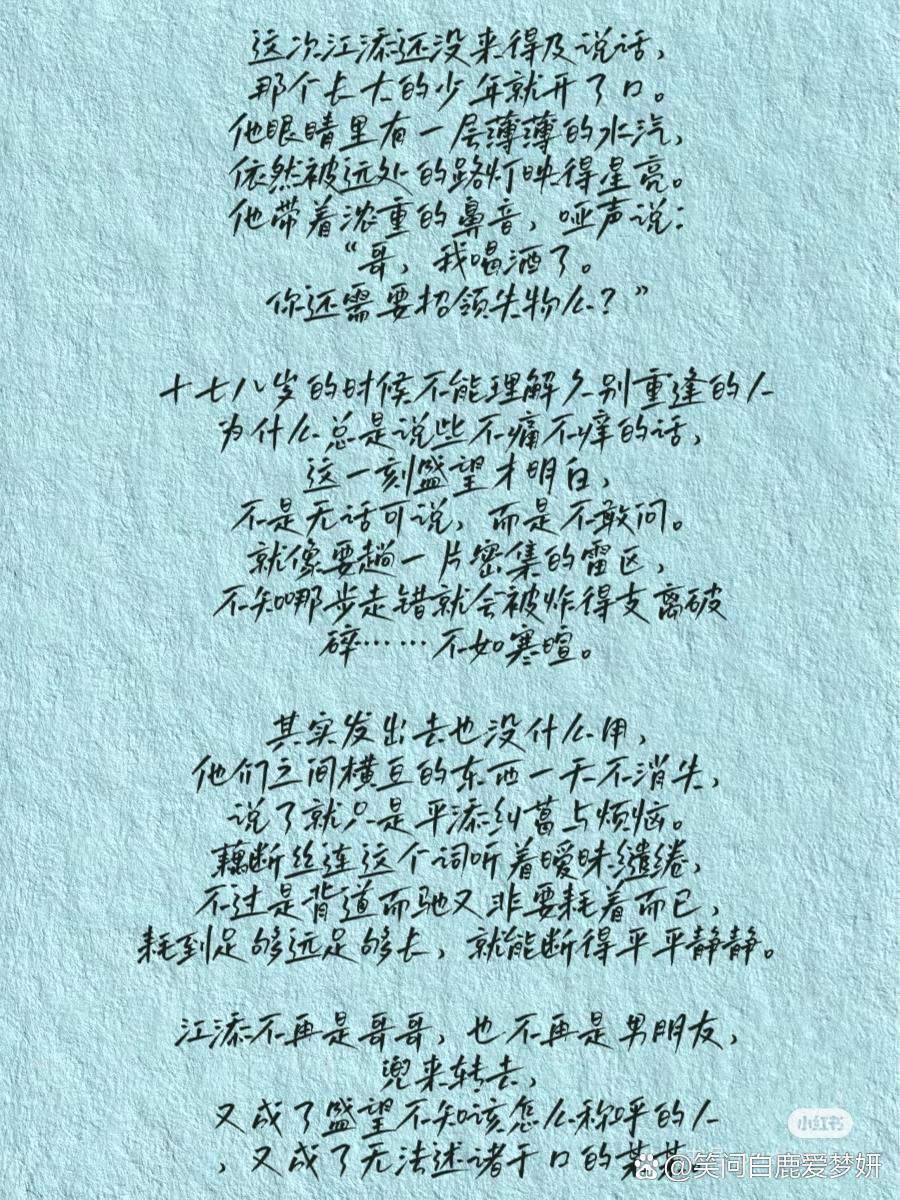 这次江添还没来得及说话，
那个长大的少年就开了口。
他眼睛里有一层薄薄的水汽，
依然被远处的路灯映得星亮。
他带着浓重的鼻音，哑声说：
“哥，我喝酒了。
你还需要招领失物么？”
十七八岁的时候不能理解久别重逢的人
为什么总是说些不痛不痒的话，
这一刻盛望才明白，
不是无话可说，而是不敢问。
就像要趟一片密集的雷区，
不知哪步走错就会被炸得支离破
碎……不如寒暄。
其实发出去也没什么用，
他们之间横亘的东西一天不消失，
说了就只是平添纠葛与烦恼。
藕断丝连这个词听着暧昧缱绻，
不过是背道而驰又非要耗着而已，
耗到足够远足够长，就能断得平平静静。
江添不再是哥哥，也不再是男朋友，
兜来转去，
又成了盛望不知该怎么称呼的人
，又成了无法述诸于口的某某
小红书
@笑问白鹿爱梦妍